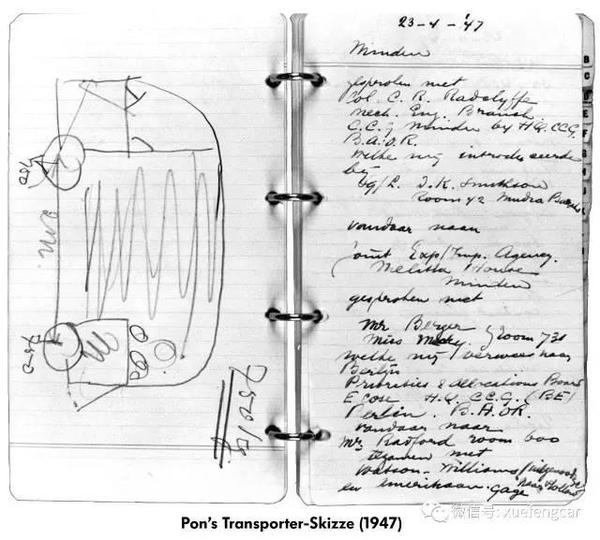 750
2 m.
750
750 kg.
23-4-'47
Minden
gesproken met
Col. C. R. Radclyffe
Mech. Eng. Branch
C.C.G. Minden by H.Q. CCG
B.A.O.R.
welke mij introduceerde
bij
J.K. Smithson
Room 42
vandaar naar
Joint Exp/Imp. Agency.
Melitta House
Minden
gesproken met
Mr Berger
Miss Room 731
welke mij verwees naar
Berlijn
Priorities & Allocations Board
H.Q. C.C.G. (BE)
Berlin. B.A.O.R.
vandaar naar
Mr Radford room 600
tezamen met
Watson - Williams
en Amerikaan. Gage
Pon's Transporter-Skizze (1947)
微信号: xuefengcar